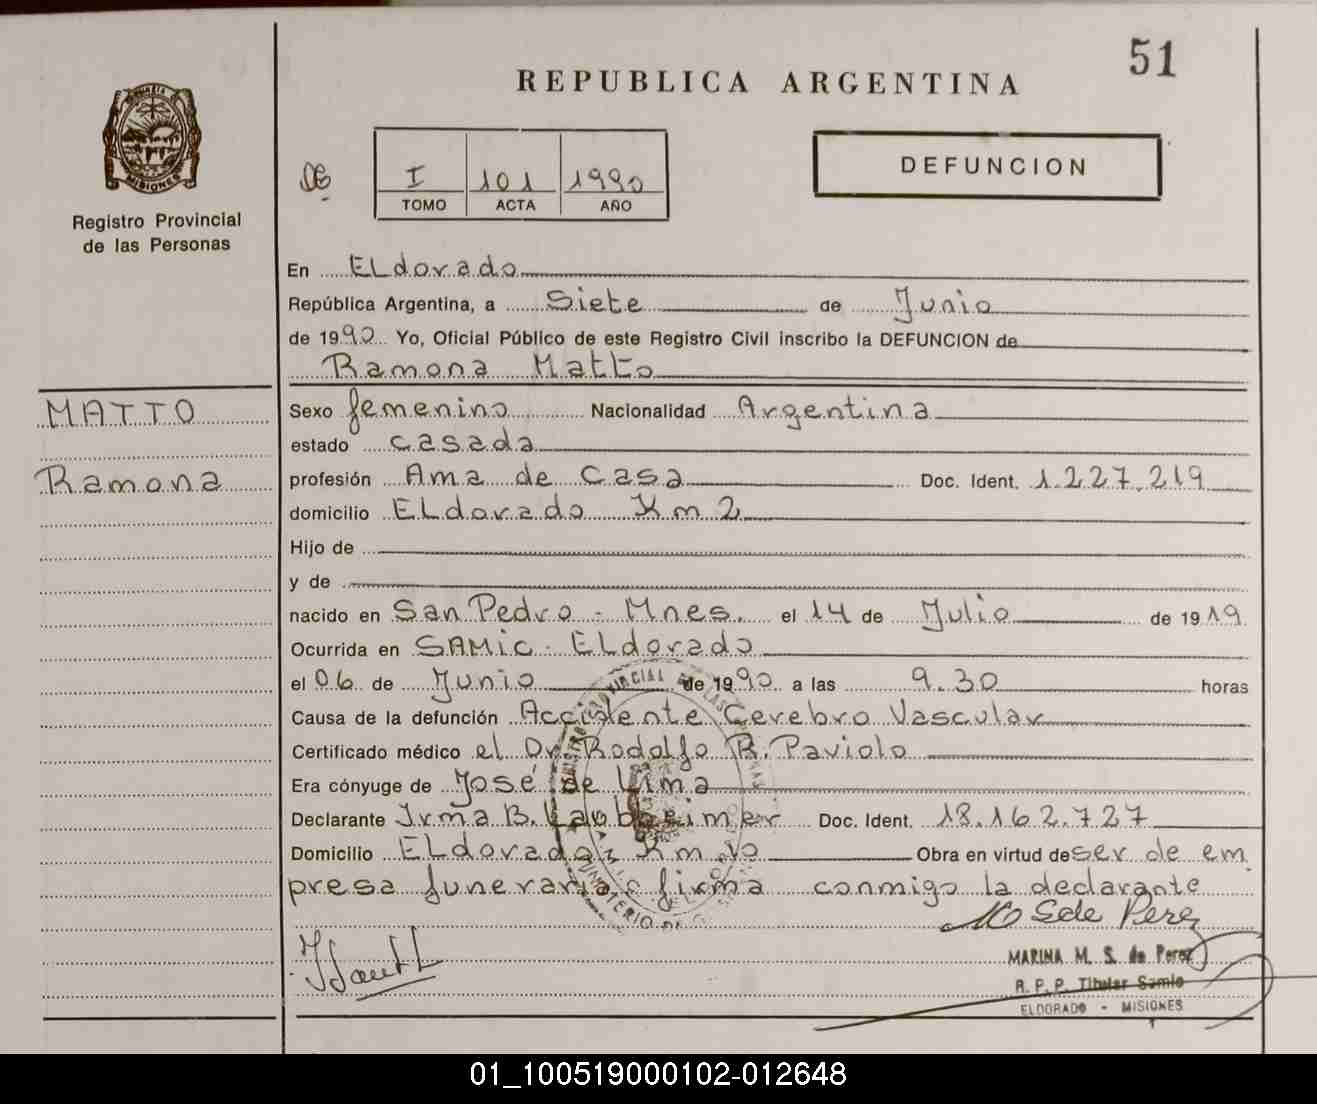 51
REPUBLICA ARGENTINA
MISIONES
Registro Provincial
de las Personas
I 101 1990
TOMO ACTA AÑO
DEFUNCION
En ELdorado
República Argentina, a Siete de Junio
de 1990 Yo, Oficial Público de este Registro Civil inscribo la DEFUNCION de
Ramona Matto
MATTO
Ramona
Sexo femenino Nacionalidad Argentina
estado casada
profesión Ama de Casa Doc. Ident. 1.227.219
domicilio ELdorado Km 2
Hijo de
y de
nacido en San Pedro - Mnes. el 14 de Julio de 1919
Ocurrida en SAMic - ELdorado
el 06 de Junio de 1990 a las 9.30 horas
Causa de la defunción Accidente Cerebro Vascular
Certificado médico el Dr. Rodolfo R. Paviolo
Era cónyuge de José de Lima
Declarante Irma B. Doc. Ident. 18.162.727
Domicilio ELdorado Km 10 Obra en virtud de ser de em
presa funeraria firma conmigo la declarante
MARINA M. S. de Perez
R. P. P. Titular Samic
ELDORADO - MISIONES
01_100519000102-012648